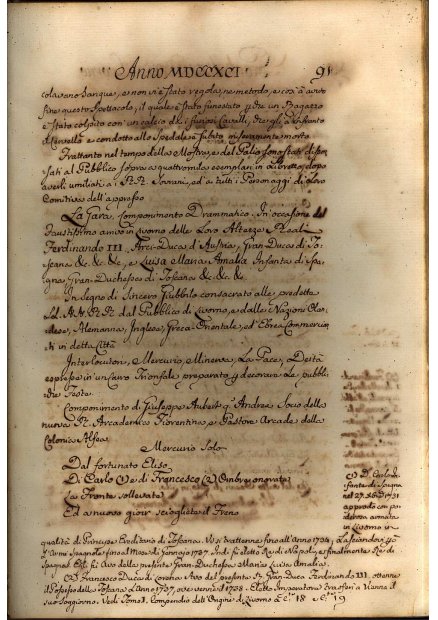 Anno MDCCXCI
9
colavano Sangue, e non vi è stato regola, ne metodo, e così à avuto
fine questo Spettacolo, il quale è stato funestato, un Ragazzo
è stato colpito con un calcio di i furiosi Cavalli,
e condotto allo Spedale è subito miseramente morto
Frattanto nel tempo della Mostra, e del Pallio sono stati dispen
sati al Pubblico sopra a quattromila esemplari in dopo
averli umiliati a i R. R. Sovrani, ed a tutti i Personaggi di Loro
Comitiva dell'appresso
La Gara, componimento Drammatico. In occasione del
faustissimo arrivo in Livorno delle Loro Altezze Reali
Ferdinando III. Arci-Duca d'Austria, Gran Duca di To-
scana &c. &c. &c. e Luisa Maria Amalia Infanta di Spa-
gna Gran-Duchessa di Toscana &c. &c. &c.
In segno di sincero Giubbilo consacrato alle prodette
Loro A. A. R. R. dal Pubblico di Livorno, e dalle Nazioni Olan-
dese, Alemanna, Inglese, Greca-Orientale, ed Ebrea Commercian
ti in detta Città
Interlocutori, Mercurio, Minerva, La Pace, Deità
espresse in un Carro Trionfale preparato decorare Le pubbli
che Feste.
Componimento di Giuseppe Aubert q. Andrea Socio della
nuova R. Accademia Fiorentina e Pastore Arcade della
Colonia Alfea
Mercurio Solo
Dal fortunato Eliso
Di Carlo (1) e di Francesco (2) Ombre onorate
La Fronte sollevate
Ed a nuovo gioir sciogliete il Freno
(1) D. Carlo In-
fante di Spagna
nel 27. 1731
approdò con po-
derosa armata
in Livorno in
qualità di Principe Ereditario di Toscana. Vi si trattenne fino all'Anno 1736, Lasciandovi
l'Armi Spagnole fino al Mese di Gennajo 1737. Indi fù eletto Rè di Napoli, e finalmente Rè di
Spagna. Esso fù Avo della presente Gran-Duchessa Maria Luisa Amalia.
(2) Francesco Duca di Lorena Avo del presente R. Gran-Duca Ferdinando III. ottenne
il Possesso della Toscana L'Anno 1737, ove venne il 1738. Eletto Imperatore trasferì a Vienna il
suo Soggiorno. Vedi Tomo I. Compendio dell'Origine di Livorno a C. 18 e 19